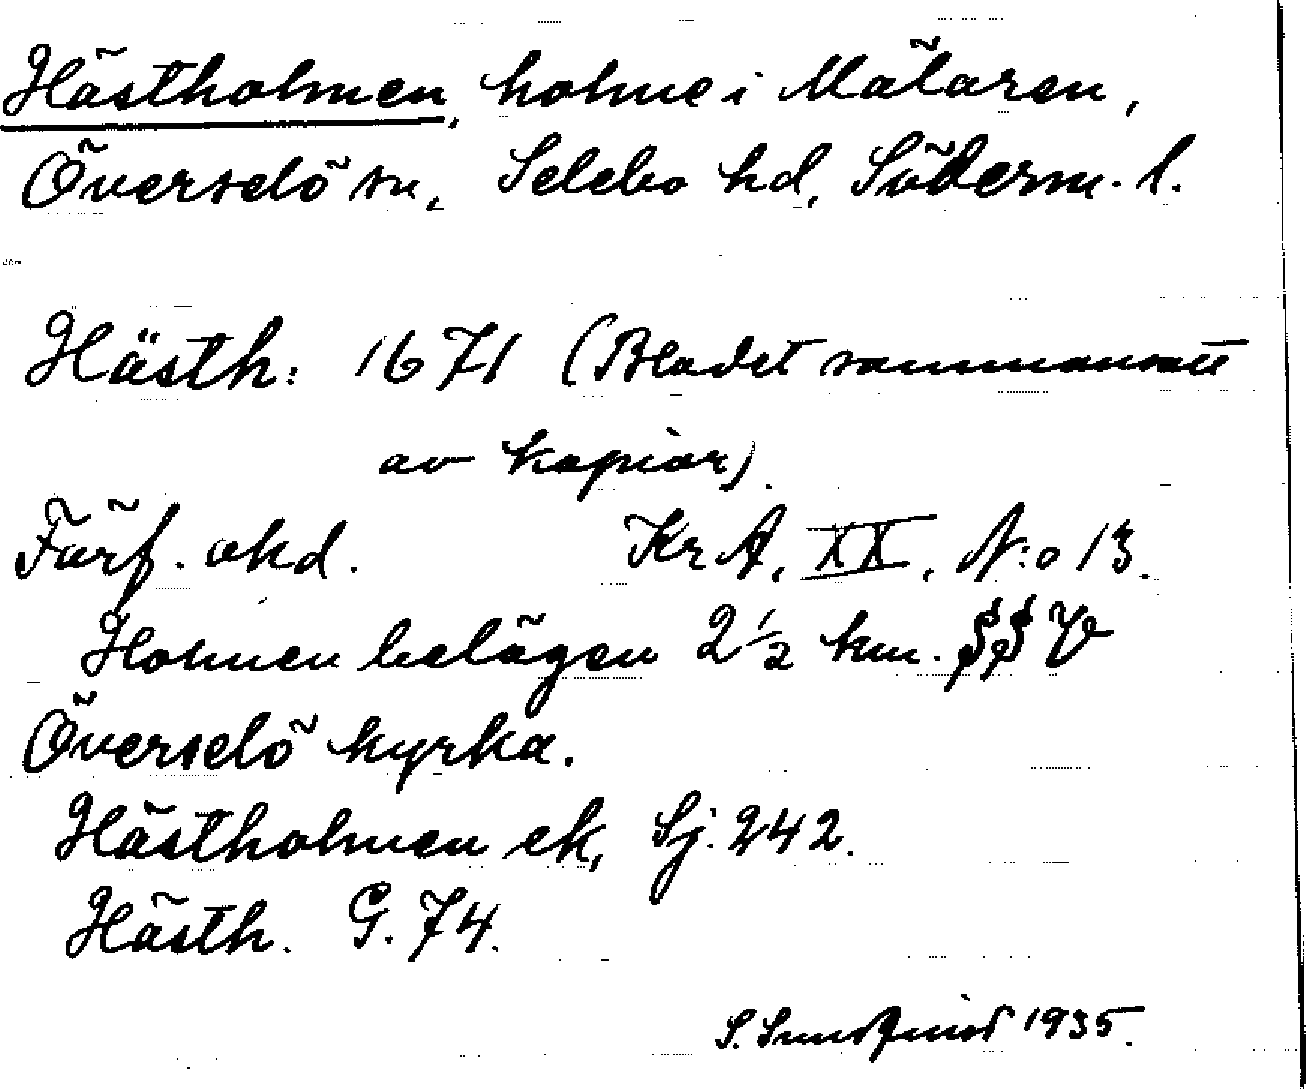 Hästholmen, holme i Mälaren,
Överselö sn, Selebo hd, Söderm. l.
Hästh: 1671 (Bladet sammansatt
av kopior).
Förf. okd. KrA, XX, N:o 13.
Holmen belägen 2 1/2 km. SSV
Överselö kyrka.
Hästholmen ek, Sj. 242.
Hästh. G. 74.
S. Sundquist 1935.